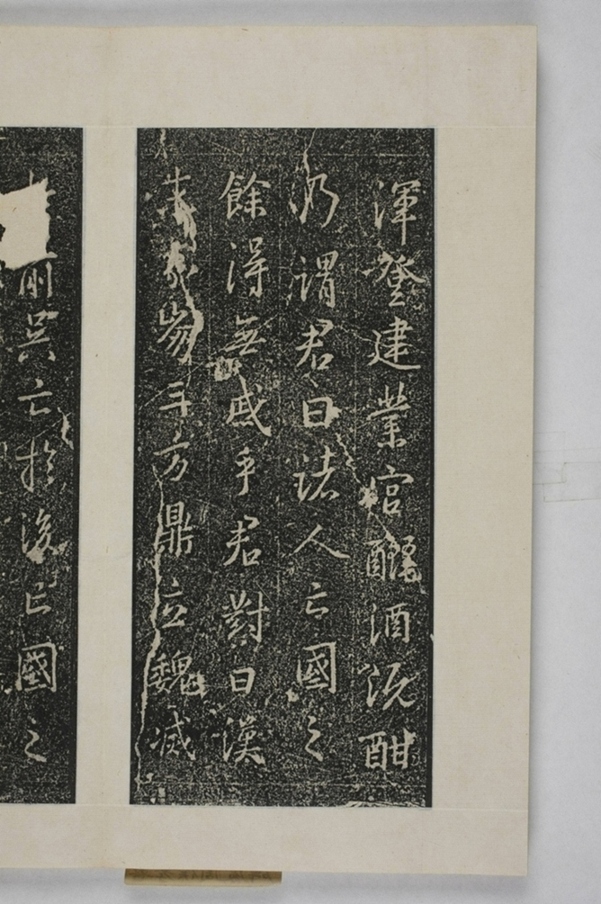 渾登建業宮釃酒既酣
乃謂君曰諸人亡國之
餘得無戚乎君對曰漢
末分崩三方鼎立魏滅
於前吳亡於後亡國之